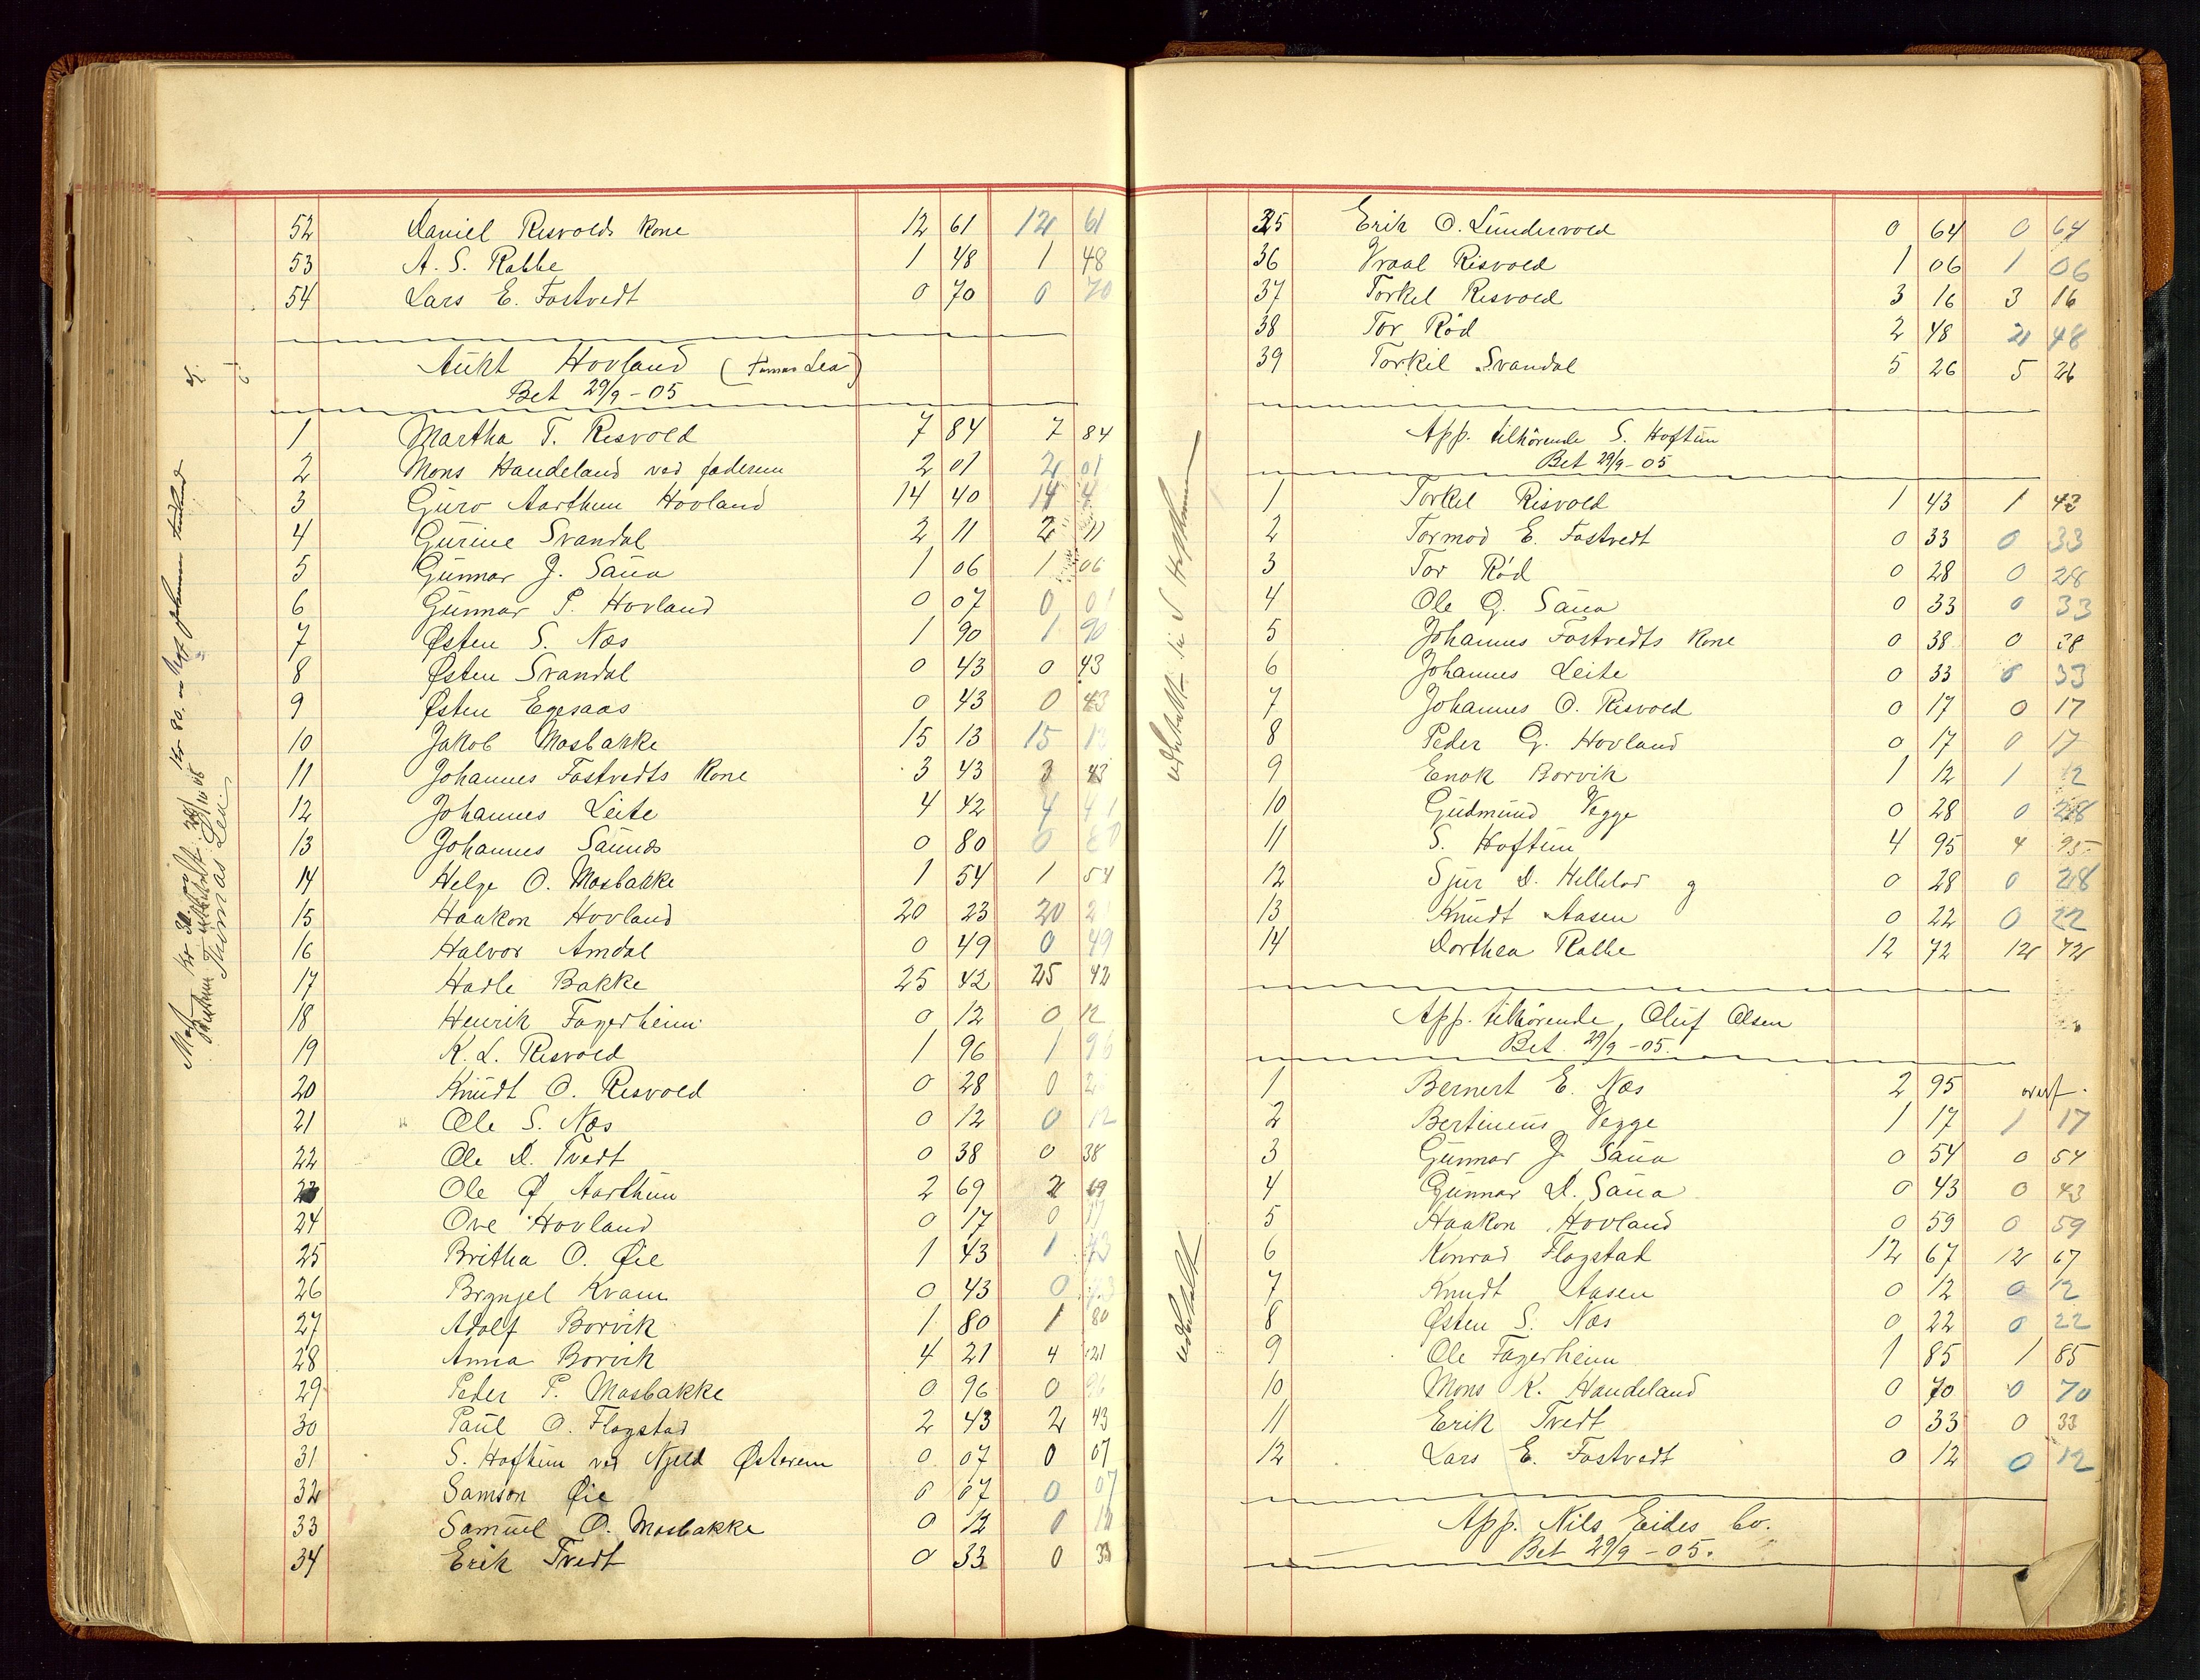 52 Daniel Risvolds kone 12 61 12 61
53 A. S. Rabbe 1 48 1 48
54 Lars E. Fostvedt 0 70 0 70
Aukt Hovland (Tomas Lea)
Bet 29/9 - 05
1 Martha T. Risvold 7 84 7 84
2 Mons Handeland ved faderen 2 01 2 01
3 Guro Aarthun Hovland 14 40 14 4
4 Gurine Svandal 2 11 2 11
5 Gunnar J. Saua 1 06 1 06
6 Gunnar P. Hovland 0 07 0 0
7 Østen S. Næs 1 90 1 90
8 Østen Svandal 0 43 0 43
9 Østen Egesaas 0 43 0 43
10 Jakob Mosbakke 15 13 15 13
11 Johannes Fostvedts kone 3 43 3 43
12 Johannes Leite 4 42 4 4
13 Johannes Saunds 0 80 0 80
14 Helge O. Mosbakke 1 54 1 54
15 Haakon Hovland 20 23 20 2
16 Halvor Amdal 0 49 0 49
17 Hadle Bakke 25 42 25 42
18 Henrik Fagerheim 0 12 0 12
19 K. L. Risvold 1 96 1 96
20 Knudt O. Risvold 0 28 0 2
21 Ole S. Næs 0 12 0 12
22 Ole D. Tvedt 0 38 0 38
23 Ole Ø. Aarthun 2 69 2 69
24 Ove Hovland 0 17 0 17
25 Britha O. Øie 1 43 1 43
26 Brynjel Kvam 0 43 0 43
27 Adolf Borvik 1 80 1 80
28 Anna Borvik 4 21 4 21
29 Peder P. Mosbakke 0 96 0 96
30 Paul O. Flogstad 2 43 2 43
31 S. Hoftun ved Njeld Østerem 0 07 0 07
32 Samson Øie 0 07 0 07
33 Samuel O. Mosbakke 0 12 0 12
34 Erik Tvedt 0 33 0 33
Thomas Lea
35 Erik O. Lundervold 0 64 0 64
36 Vraal Risvold 1 06 1 06
37 Torkel Risvold 3 16 3 16
38 Tor Rød 2 48 2 48
39 Torkil Svandal 5 26 5 26
App. tilhörende S. Hoftun
Bet 29/9 - 05
udbetalt til S Hofthun
1 Torkel Risvold 1 43 1 43
2 Tormod E. Fostvedt 0 33 0 33
3 Tor Rød 0 28 0 28
4 Ole G. Saua 0 33 0 33
5 Johannes Fostvedts kone 0 38 0 38
6 Johannes Leite 0 33 0 33
7 Johannes O. Risvold 0 17 0 17
8 Peder G. Hovland 0 17 0 17
9 Enok Borvik 1 12 1 12
10 Gudmund Vegge 0 28 0 28
11 S. Hoftun 4 95 4 95
12 Sjur D. Hellelod g 0 28 0 28
13 Knudt Aasen 0 22 0 22
14 Dorthea Rabbe 12 72 12 72
App. tilhörende Oluf Olsen
Bet. 29/9 - 05.
udbetalt
1 Bernert E. Næs 2 95 overf.
2 Bertineus Vegge 1 17 1 17
3 Gunnar J. Saua 0 54 0 54
4 Gunnar D. Saua 0 43 0 43
5 Haakon Hovland 0 59 0 59
6 Konrad Flogstad 12 67 12 67
7 Knudt Aasen 0 12 0 12
8 Østen S. Næs 0 22 0 22
9 Ole Fagerheim 1 85 1 85
10 Mons K. Handeland 0 70 0 70
11 Erik Tvedt 0 33 0 33
12 Lars E. Fostvedt 0 12 0 12
App. Nils Eides bo.
Bet 29/9 - 05.